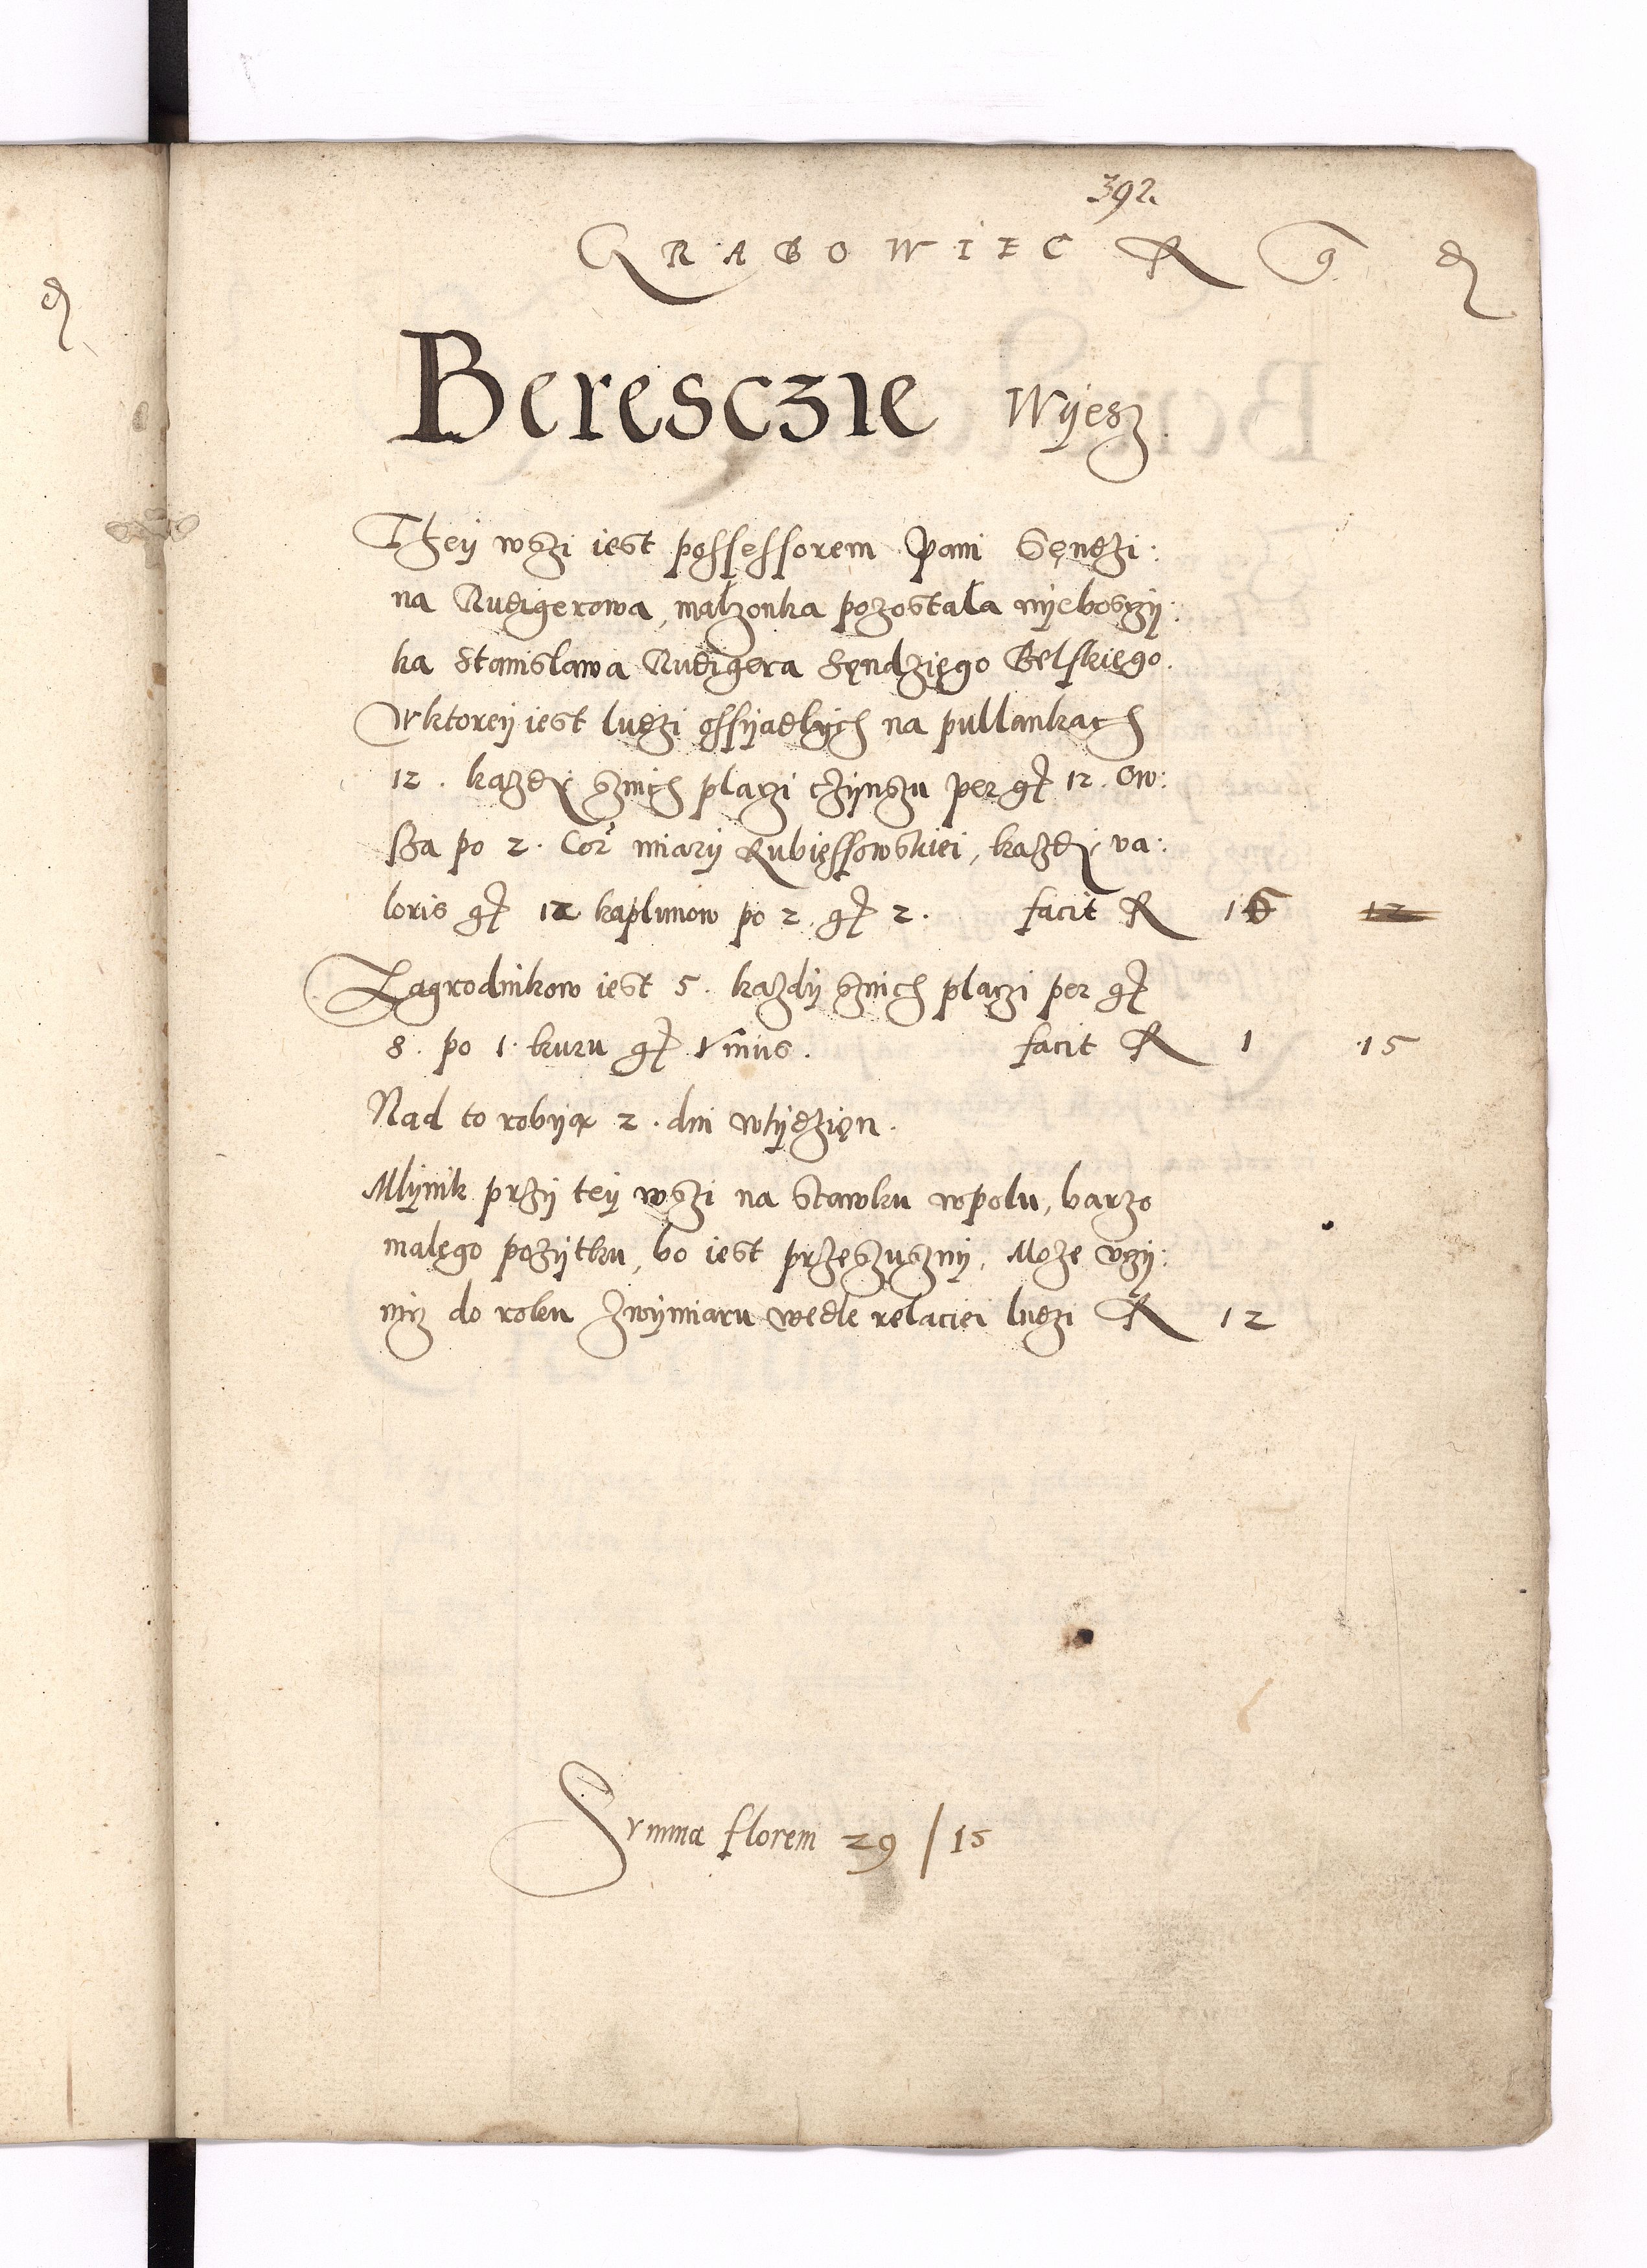 392.
GRABOWIEC R g δ
Beresczie Wyesz
They wszi iest possessorem Pani Sędzi:
na Rudigerowa, malzonka pozostala nyebosczy:
ka Stanislawa Rudigera Sęndziego Belskiego.
W ktorey iest ludzi ossyadlych na pullankach
12. kazdy sznich placzi czynszu per gr 12. Ow:
sza po 2. Cor miary Rubiessowskiei, kazdy va:
loris gr 12 kaplunow po 2. gr 2. facit R 16 12
Zagrodnikow iest 5. kazdy sznich placzi per gr
8. po 1. kuru gr vnius. facit R 1 15
Nad to robyą 2. dni wtydzien.
Mlynik przy tey wszi na stawku wpolu, barzo
malego pozytku, bo iest przeszuszny, Moze vczy:
nycz do roku zwymiaru wedle relaciei ludzi R 12
Summa floren 29 / 15